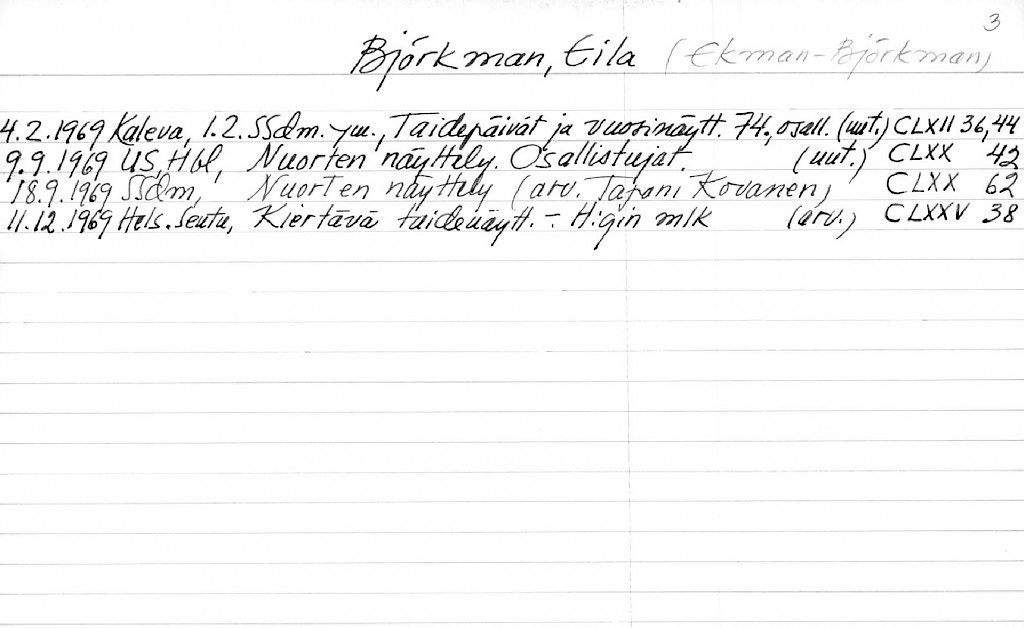 3
Björkman, Eila (Ekman-Björkman)
4.2.1969 Kaleva, 1.2. SSdm. ym., Taidepäivät ja vuosinäytt. 74., osall. (uut.) CLXII 36,44
9.9.1969 US, Hbl, Nuorten näyttely. Osallistujat. (uut.) CLXX 42
18.9.1969 SSdm, Nuorten näyttely (arv. Tapani Kovanen) CLXX 62
11.12.1969 Hels. Seutu, Kiertävä taidenäytt. - H:gin mlk (arv.) CLXXV 38